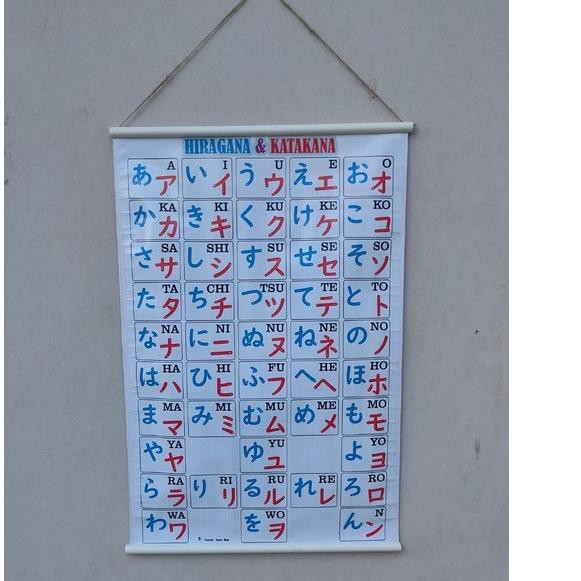 HIRAGANA & KATAKANA
A I U E O
あア いイ うウ えエ おオ
KA KI KU KE KO
かカ きキ くク けケ こコ
SA SHI SU SE SO
さサ しシ すス せセ そソ
TA CHI TSU TE TO
たタ ちチ つツ てテ とト
NA NI NU NE NO
なナ にニ ぬヌ ねネ のノ
HA HI FU HE HO
はハ ひヒ ふフ へヘ ほホ
MA MI MU ME MO
まマ みミ むム めメ もモ
YA YU YO
やヤ ゆユ よヨ
RA RI RU RE RO
らラ りリ るル れレ ろロ
WA WO N
わワ をヲ んン